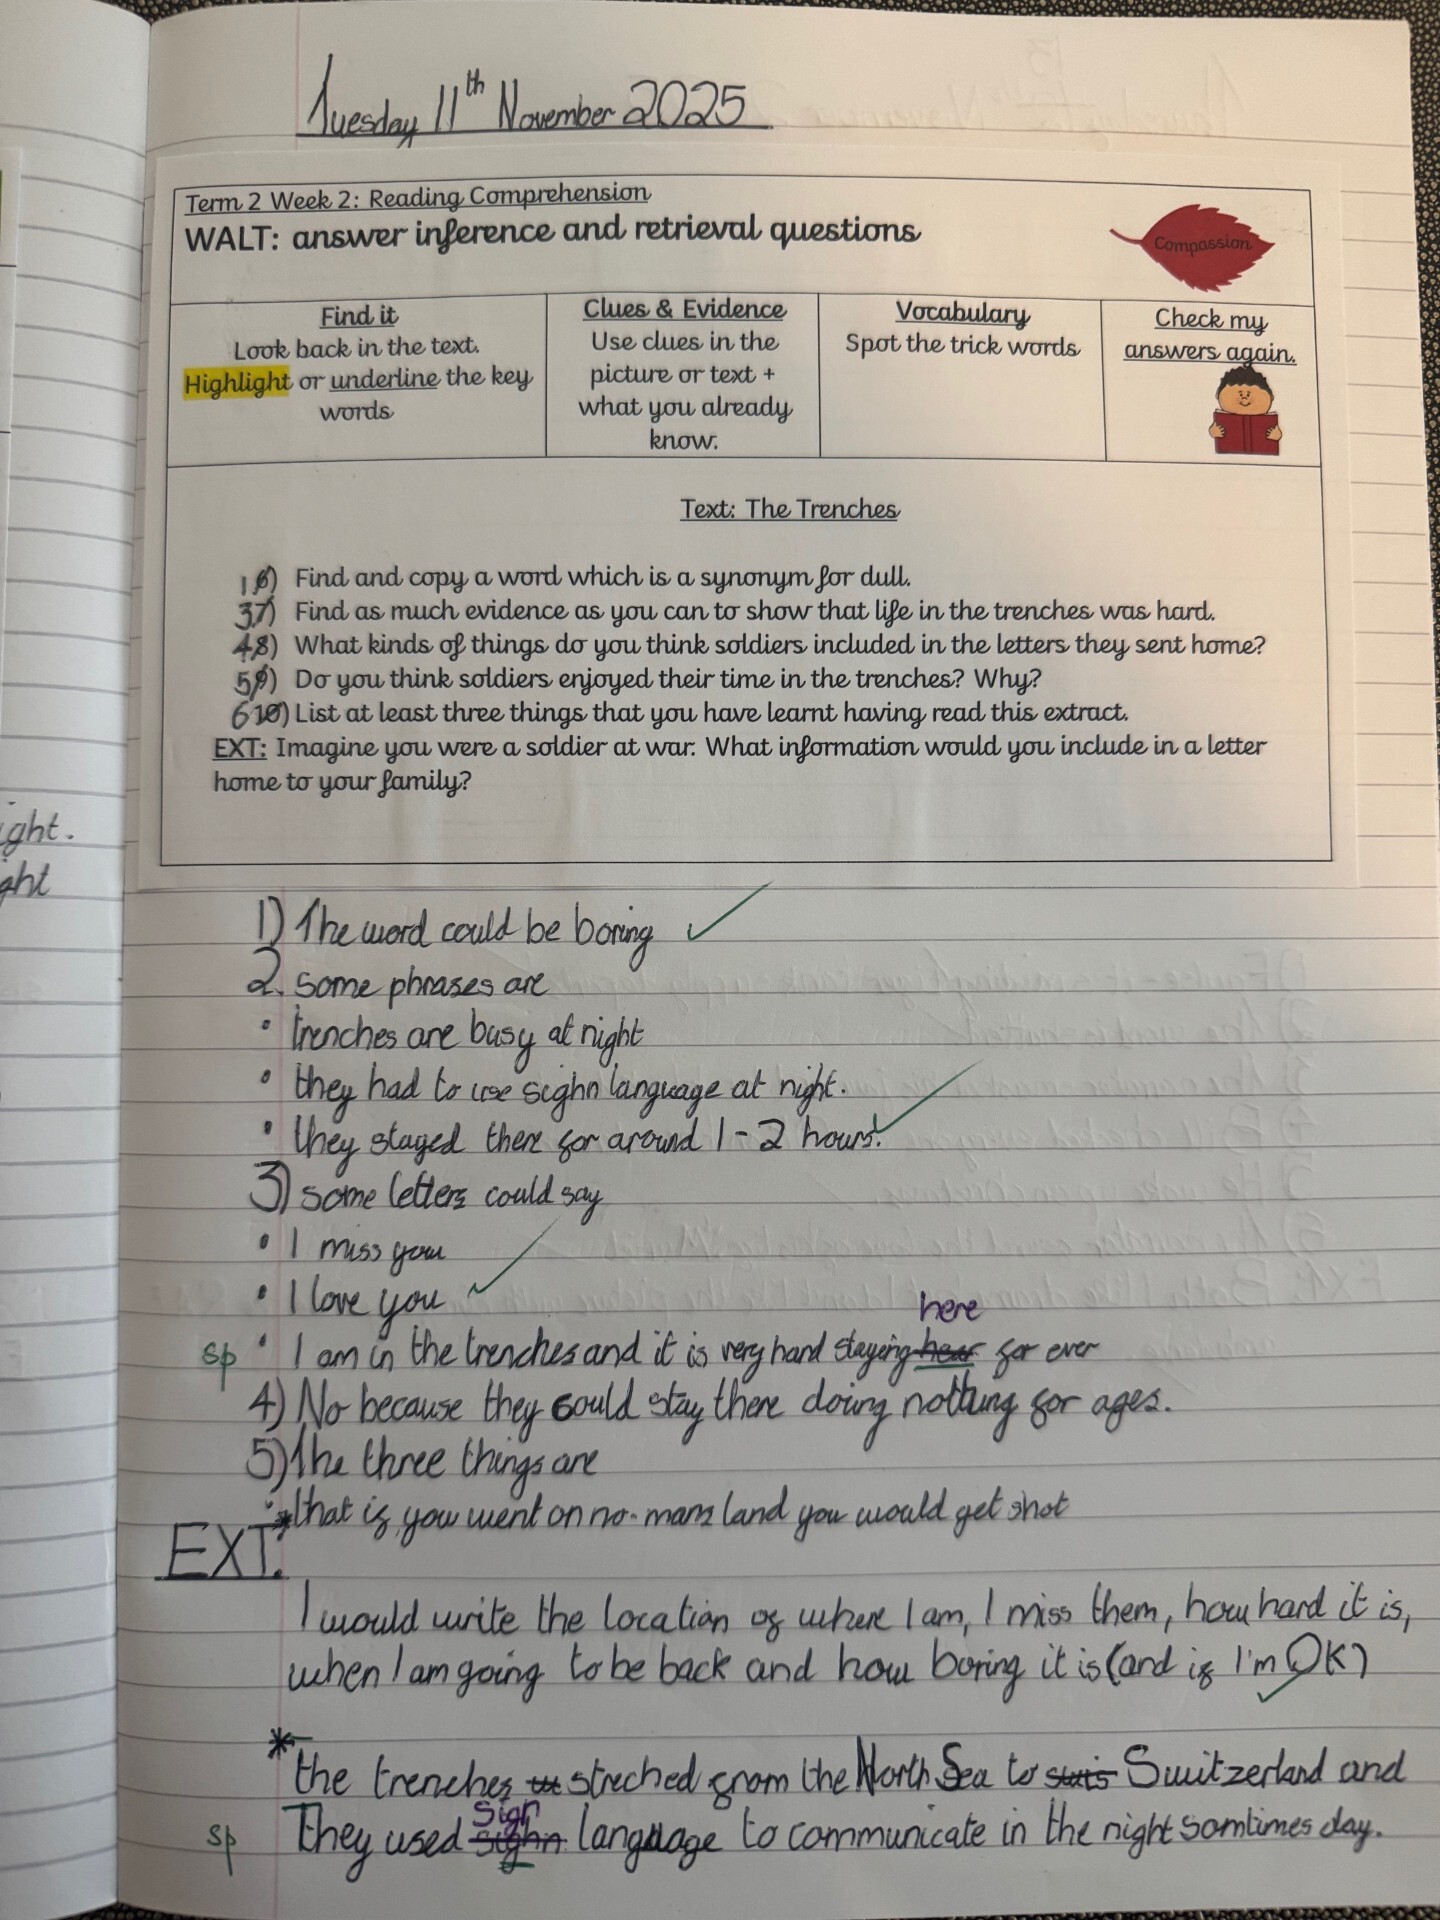 Tuesday 11th November 2025
Term 2 Week 2: Reading Comprehension
WALT: answer inference and retrieval questions
Compassion
Find it
Look back in the text.
Highlight or underline the key
words
Clues & Evidence
Use clues in the
picture or text +
what you already
know.
Vocabulary
Spot the trick words
Check my
answers again.
Text: The Trenches
1 6) Find and copy a word which is a synonym for dull.
3 7) Find as much evidence as you can to show that life in the trenches was hard.
4 8) What kinds of things do you think soldiers included in the letters they sent home?
5 9) Do you think soldiers enjoyed their time in the trenches? Why?
6 10) List at least three things that you have learnt having read this extract.
EXT: Imagine you were a soldier at war. What information would you include in a letter
home to your family?
ight.
ght
1) The word could be boring
2. some phrases are
• trenches are busy at night
• they had to use sighn language at night.
• they stayed there for around 1-2 hours.
3) some letters could say
• I miss you
• I love you
here
sp • I am in the trenches and it is very hard staying hear for ever
4) No because they could stay there doing nothing for ages.
5) The three things are
• that if you went on no-mans land you would get shot
EXT.
I would write the location of where I am, I miss them, how hard it is,
when I am going to be back and how boring it is (and if I'm OK)
* the trenches streched from the North Sea to Switzerland and
sign
sp They used sighn language to communicate in the night somtimes day.